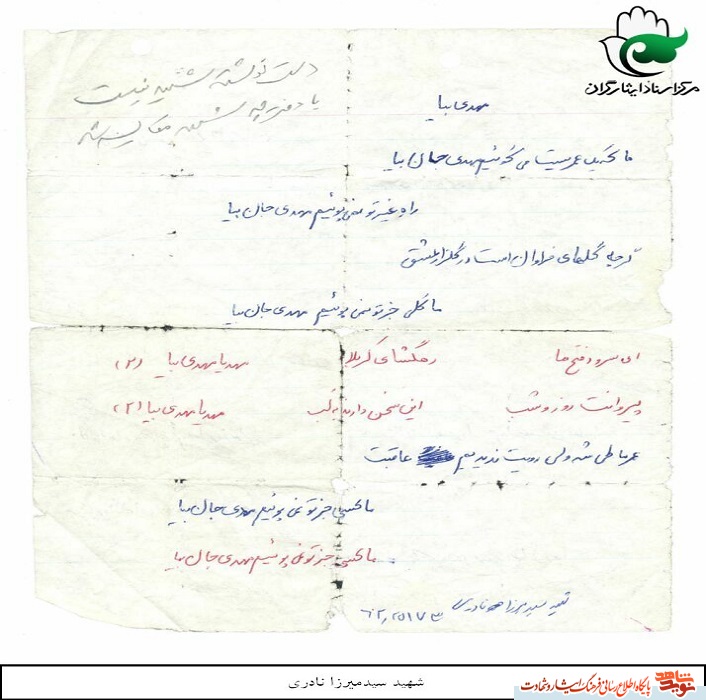 مرکز اسناد ایثارگران
دست تو نیست
یا دفترچه
مهدی بیا
ما که یک عمریست می گوئیم مهدی جان بیا
راه غیر تو نمی پوئیم مهدی جان بیا
گرچه گلهای فراوان است در گلزار عشق
ما گلی جز تو نمی بوئیم مهدی جان بیا
ای سرود فتح ما رهگشای کربلا مهدیا مهدی بیا (۲)
پیروانت روز و شب این سخن دارند به لب مهدیا مهدی بیا (۲)
عمر ما طی شد ولی رویت ندیدیم عاقبت
ما کسی جز تو نمی پوئیم مهدی جان بیا
ما کسی جز تو نمی پوئیم مهدی جان بیا
سید میرزا نادری
شهید سیدمیرزا نادری
نوید شاهد پایگاه اطلاع رسانی فرهنگ ایثار و شهادت